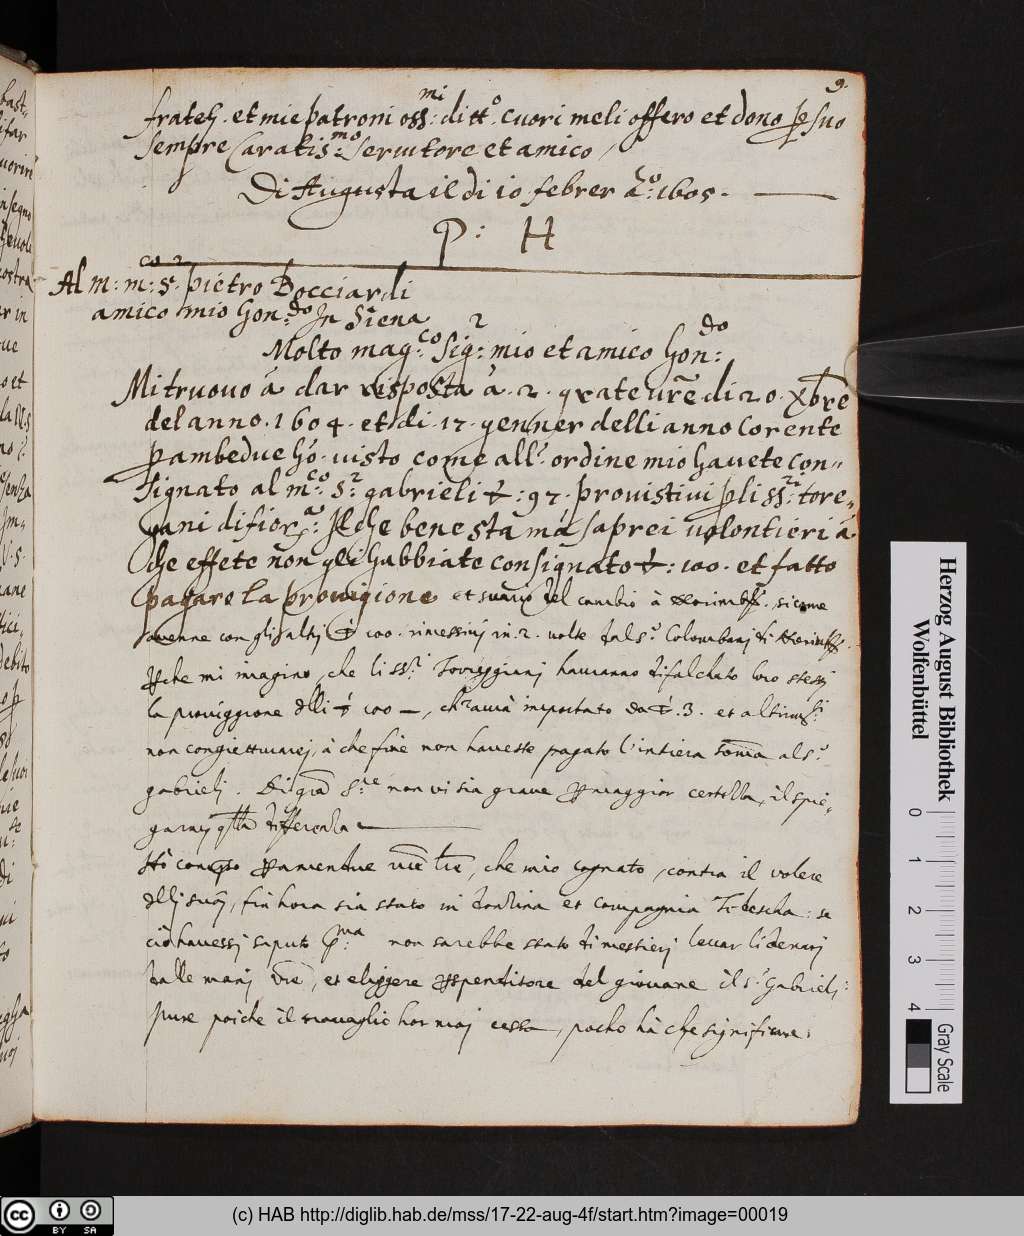 9.
fratelj. et mie patroni oss:mi ditto. cuori meli offero et dono pe suo
sempre Caratis:mo Seruitore et amico /
Di Augusta il di 10 febrer ao: 1605. —
P: H
Al m: m:co Sr. pietro Bocciardi
amico mio hon:do Jn Siena
Molto mag:co Sig:r mio et amico hon:do
Mi truovo á dar risposta á. 2. grate vre di 20. Xbre
del anno. 1604. et di 17. genner delli anno Corente
p ambedue hó. visto come all'. ordine mio havete con=
Signato al m:co Sr. gabrieli : 97. provistivi p li SS:ri torre,
giani di fior:a. Jl che bene sta má saprei volontieri á
Che effete non gli habbiate consignato : 100. et fatto
pagare la provigione et suario del cambio à Norimb. sicome
avenne con gli altrj 100. rimessivj in. 2. volte dal sr. Colombanj di Norimb.
che mi imagino, che li ssri. Torreggianj hauranno difalchato loro stessj
la proviggione dlli 100 —, ch'avrà importato da . 3. et altrimti.
non congietturarej, à che fine non haveste pagato l'intiera soma al sr.
gabrielj. Di gra Sre non vi sia grave p maggior certezza, il spie,
garmj qsta differenza —
Hò conpso p amendue vre lre, che mio cognato, contra il volere
dllj suoj, fin hora sia stato in dozina et compagnia Tedescha: se
ciò havessj saputo p:ma non sarebbe stato di mestierj levar li denarj
dalle manj vre, et eliggere p spenditore del giovane il sr. Gabrielj:
pure poiche il travaglio hor maj cessa, pocho hà che significare.
Herzog August Bibliothek
Wolfenbüttel
0 1 2 3 4
Gray Scale
cc BY SA
(c) HAB http://diglib.hab.de/mss/17-22-aug-4f/start.htm?image=00019